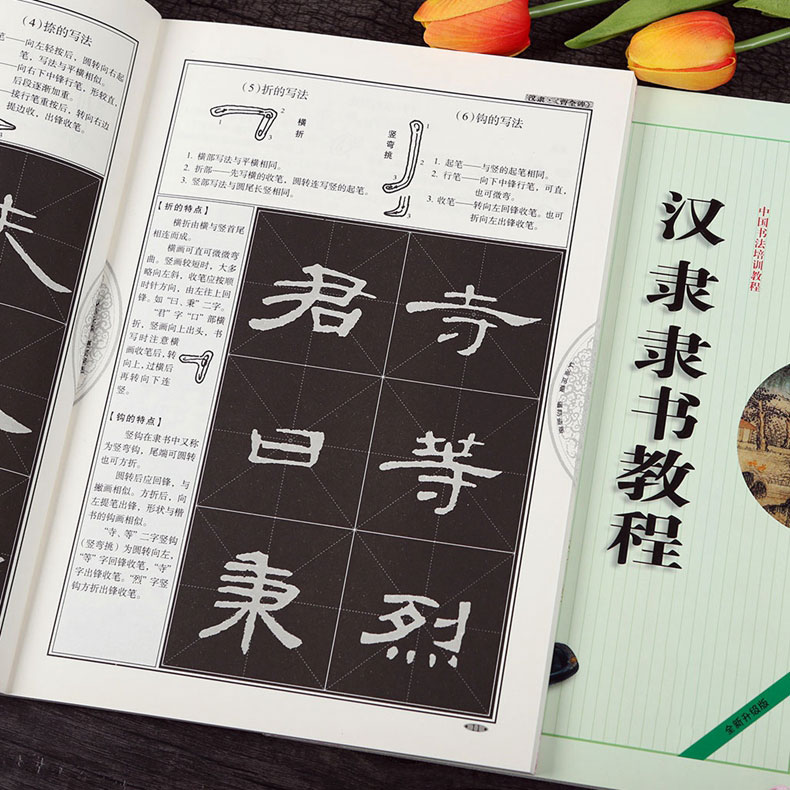 (4)捺的写法
向左轻按后，圆转向右起
笔，写法与平横相似。
向右下中锋行笔，形较直，
后段逐渐加重。
接行笔重按后，转向右边
提边收，出锋收笔。
汉隶·《曹全碑》
(5)折的写法
1
2
3
横
折
1. 横部写法与平横相同。
2. 折部——先写横的收笔，圆转连写竖的起笔。
3. 竖部写法与圆尾长竖相同。
(6)钩的写法
竖
弯
挑
1
2
3
1. 起笔——与竖的起笔相同。
2. 行笔——向下中锋行笔，可直，
也可微弯。
3. 收笔——转向左回锋收笔。也可
折向左出锋收笔。
【折的特点】
横折由横与竖首尾
相连而成。
横画可直可微微弯
曲。竖画较短时，大多
略向左斜，收笔应按顺
时针方向，由左往上回
锋。如“曰、秉”二字。
“君”字“口”部横
折，竖画向上出头，书
写时注意横
画收笔后，转
向上，过横后
再转向下连
竖。
【钩的特点】
竖钩在隶书中又称
为竖弯钩，尾端可圆转
也可方折。
圆转后应回锋，与
撇画相似。方折后，向
左提笔出锋，形状与楷
书的钩画相似。
“寺、等”二字竖钩
(竖弯挑)为圆转向左，
“等”字回锋收笔，“寺”
字出锋收笔。“烈”字竖
钩方折出锋收笔。
君 寺
曰 等
秉 烈
11
中国书法培训教程
汉隶隶书教程
全新升级版